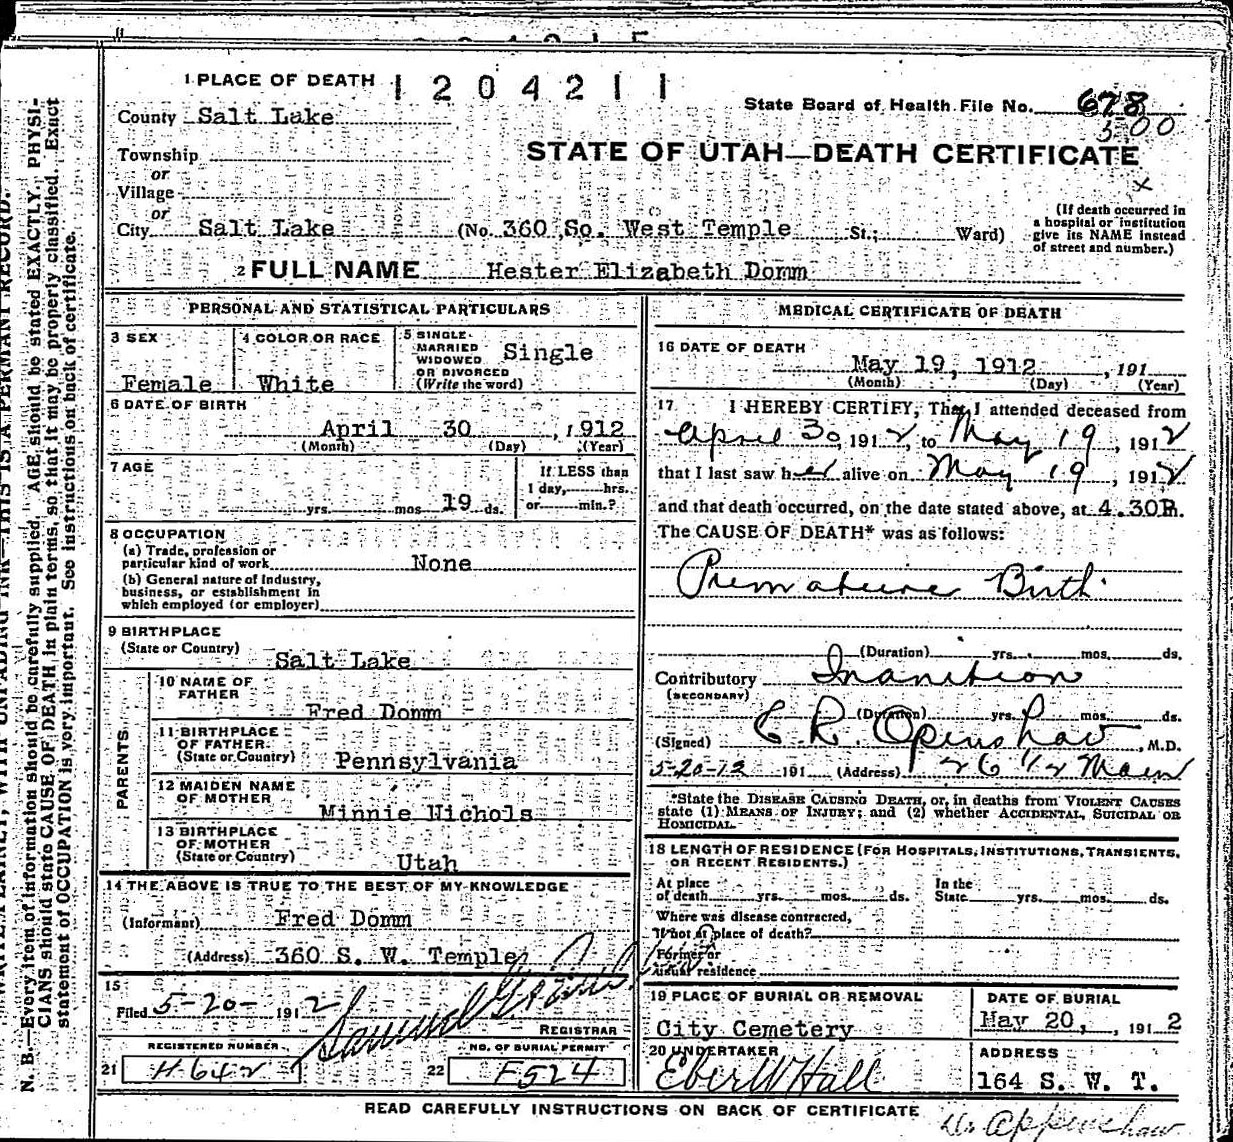 1 PLACE OF DEATH 1204211
State Board of Health File No. 678
500
County Salt Lake
STATE OF UTAH—DEATH CERTIFICATE
Township
or
Village
or
City Salt Lake (No. 360 So. West Temple St.; Ward)
(If death occurred in a hospital or institution give its NAME instead of street and number.)
2 FULL NAME Hester Elizabeth Domm
PERSONAL AND STATISTICAL PARTICULARS
3 SEX Female
4 COLOR OR RACE White
5 SINGLE MARRIED WIDOWED OR DIVORCED (Write the word) Single
6 DATE OF BIRTH
April 30, 1912
(Month) (Day) (Year)
7 AGE
yrs. mos. 19 ds.
If LESS than 1 day, hrs. or min.?
8 OCCUPATION
(a) Trade, profession or particular kind of work None
(b) General nature of industry, business, or establishment in which employed (or employer)
9 BIRTHPLACE
(State or Country) Salt Lake
PARENTS
10 NAME OF FATHER Fred Domm
11 BIRTHPLACE OF FATHER (State or Country) Pennsylvania
12 MAIDEN NAME OF MOTHER Minnie Nichols
13 BIRTHPLACE OF MOTHER (State or Country) Utah
14 THE ABOVE IS TRUE TO THE BEST OF MY KNOWLEDGE
(Informant) Fred Domm
(Address) 360 S. W. Temple
15
Filed 5-20- 1912
REGISTRAR
REGISTERED NUMBER
21 H642
NO. OF BURIAL PERMIT
22 F524
MEDICAL CERTIFICATE OF DEATH
16 DATE OF DEATH
May 19, 1912, 191
(Month) (Day) (Year)
17 I HEREBY CERTIFY, That I attended deceased from
April 30, 1912, to May 19, 1912
that I last saw her alive on May 19, 1912
and that death occurred, on the date stated above, at 4.30P.
The CAUSE OF DEATH* was as follows:
Premature Birth
(Duration) yrs. mos. ds.
Contributory Inanition
(SECONDARY)
(Duration) yrs. mos. ds.
(Signed) C R. Openshaw, M.D.
5-20-12 191 (Address) 26 1/2 Main
*State the DISEASE CAUSING DEATH, or, in deaths from VIOLENT CAUSES
state (1) MEANS OF INJURY; and (2) whether ACCIDENTAL, SUICIDAL OR
HOMICIDAL.
18 LENGTH OF RESIDENCE (FOR HOSPITALS, INSTITUTIONS, TRANSIENTS,
OR RECENT RESIDENTS.)
At place of death yrs. mos. ds. In the State yrs. mos. ds.
Where was disease contracted,
If not at place of death?
Former or
usual residence
19 PLACE OF BURIAL OR REMOVAL
City Cemetery
DATE OF BURIAL
May 20, , 1912
20 UNDERTAKER
Eber W Hall
ADDRESS
164 S. W. T.
READ CAREFULLY INSTRUCTIONS ON BACK OF CERTIFICATE
N. B.—Every item of information should be carefully supplied. AGE should be stated EXACTLY. PHYSI-
CIANS should state CAUSE OF DEATH in plain terms, so that it may be properly classified. Exact
statement of OCCUPATION is very important. See instructions on back of certificate.